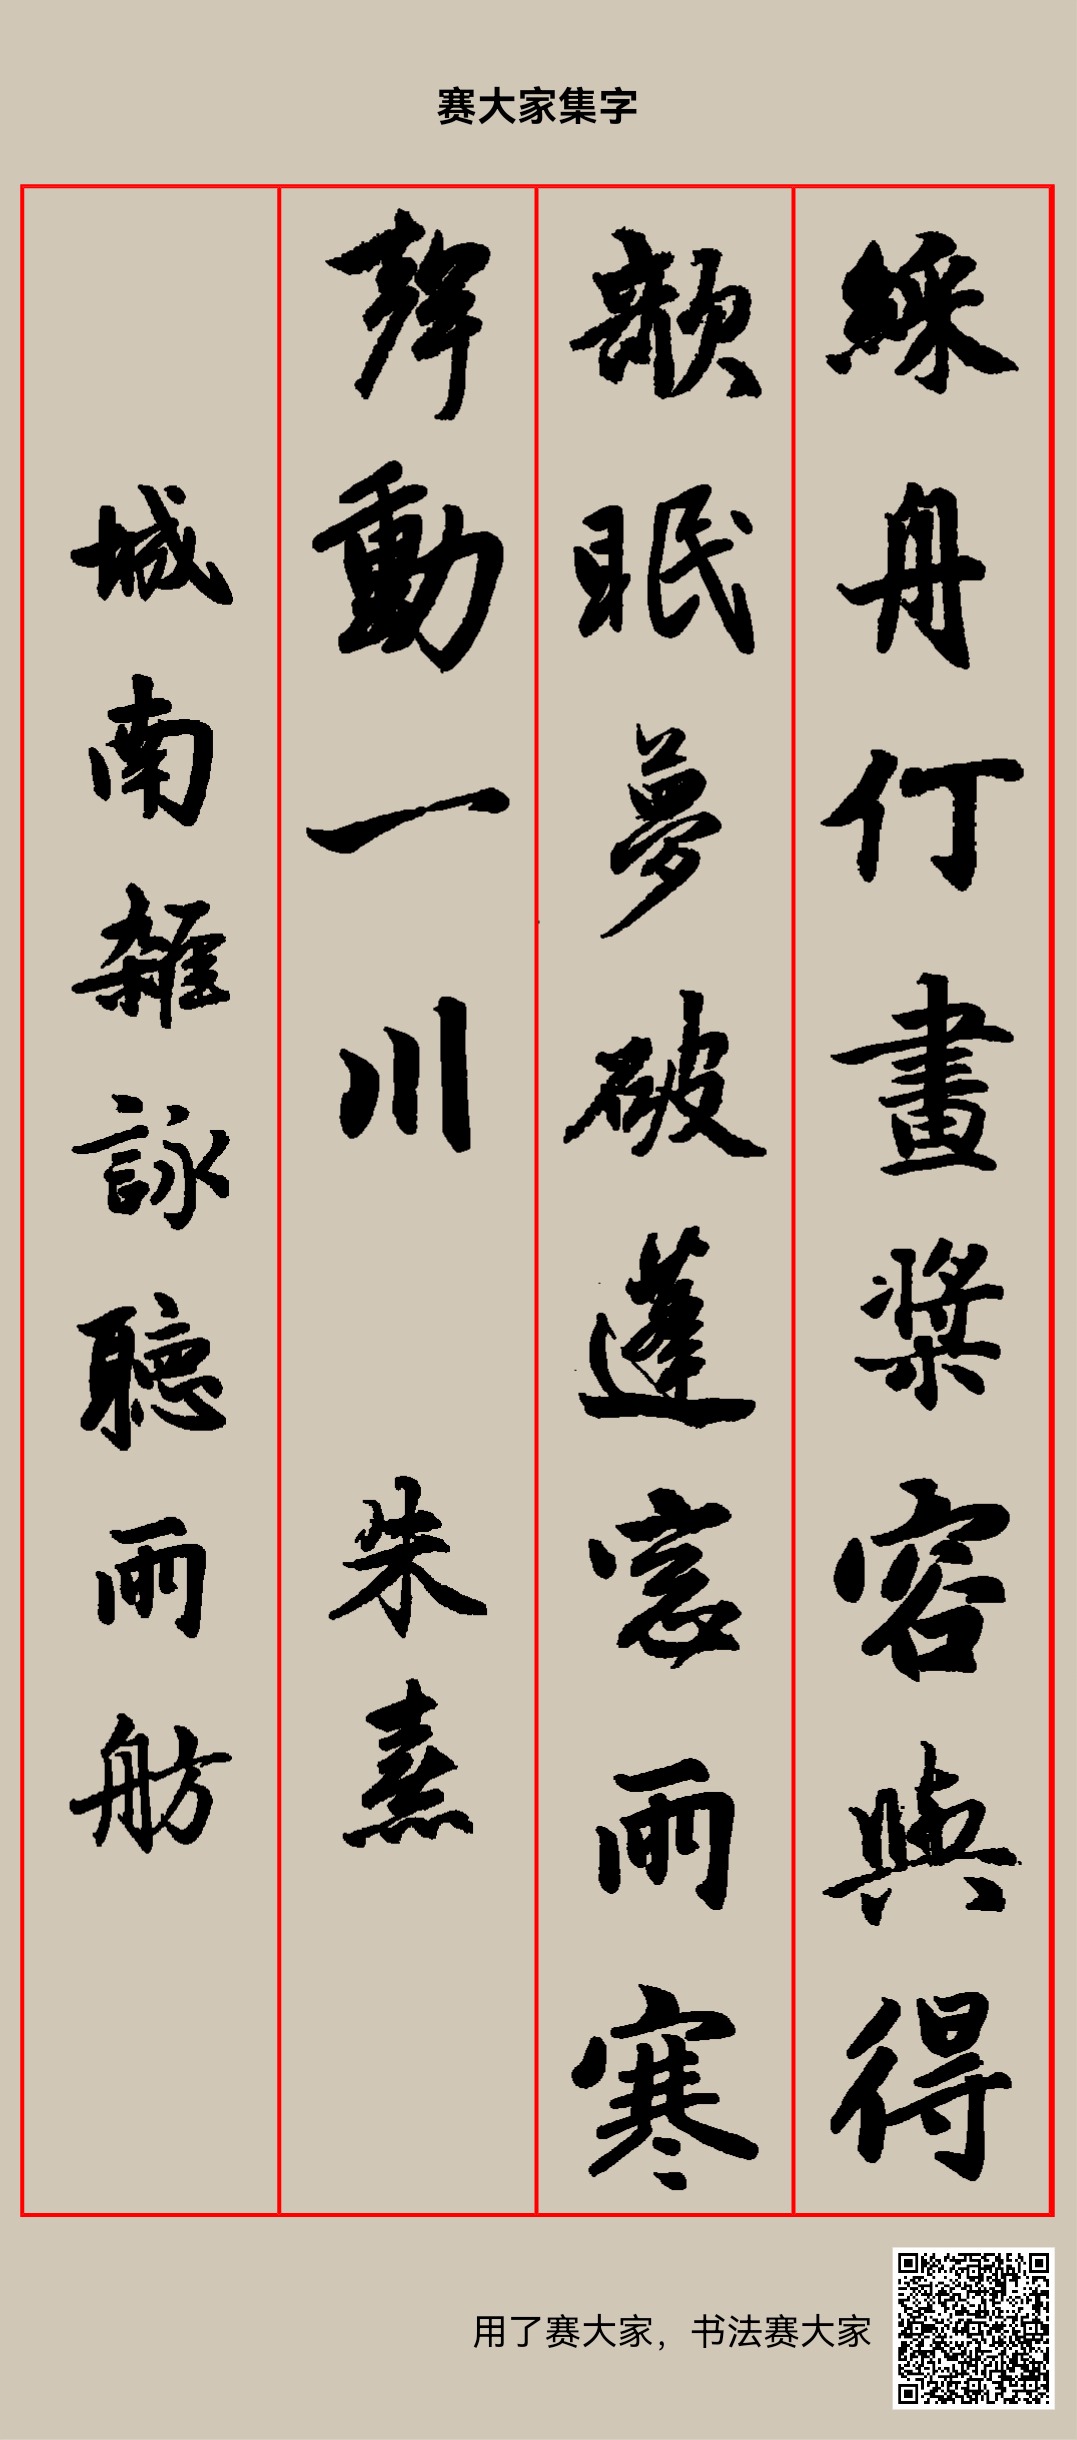 赛大家集字
綵舟仃畫槳容與得
欹眠夢破蓬窓雨寒
聲動一川 朱熹
城南雜詠聽雨舫
用了赛大家，书法赛大家